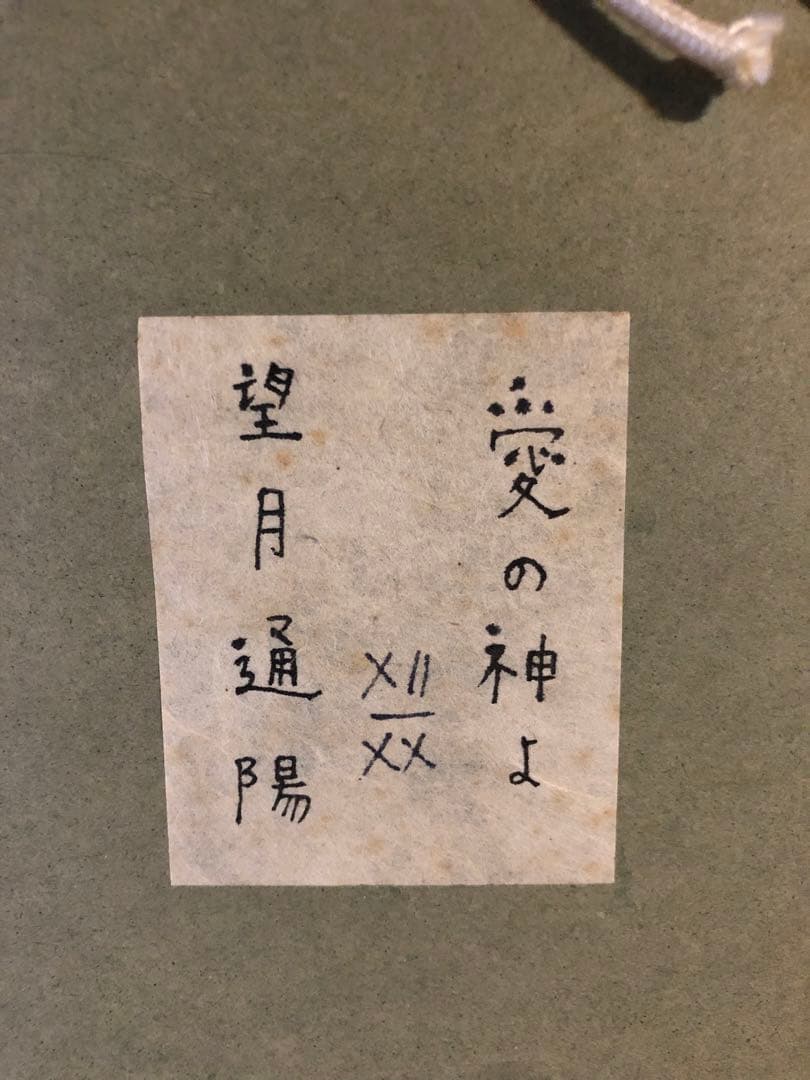 愛の神よ
XII
XX
望月通陽